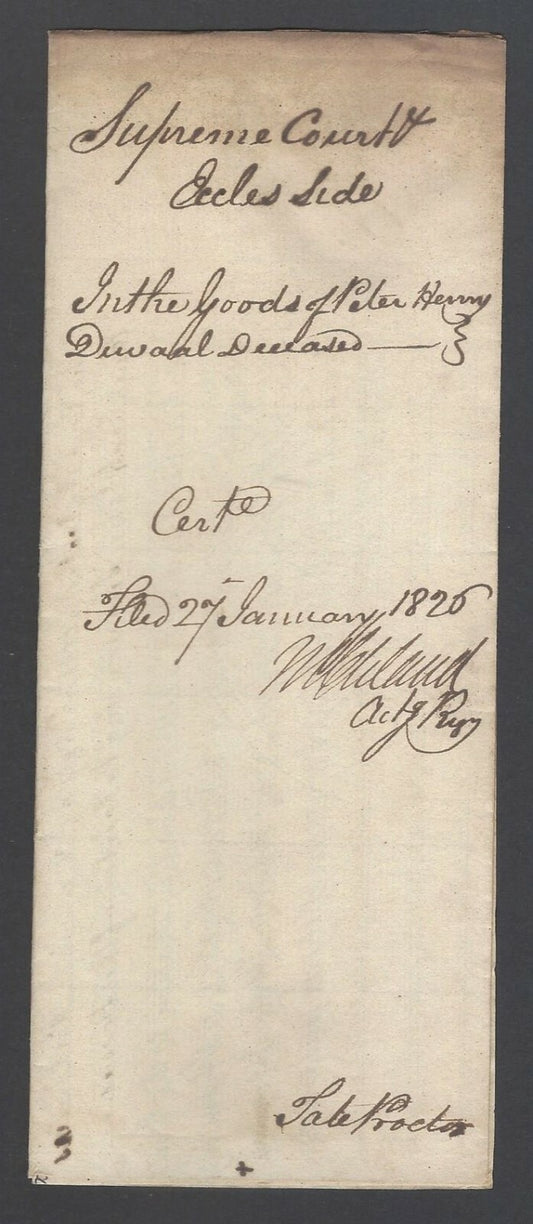 Supreme Court
Eccles Side
In the Goods of Peter Henry
Dewaal Deceased
Certe
Filed 27 January 1826
Actg Regr
Tate Proctor